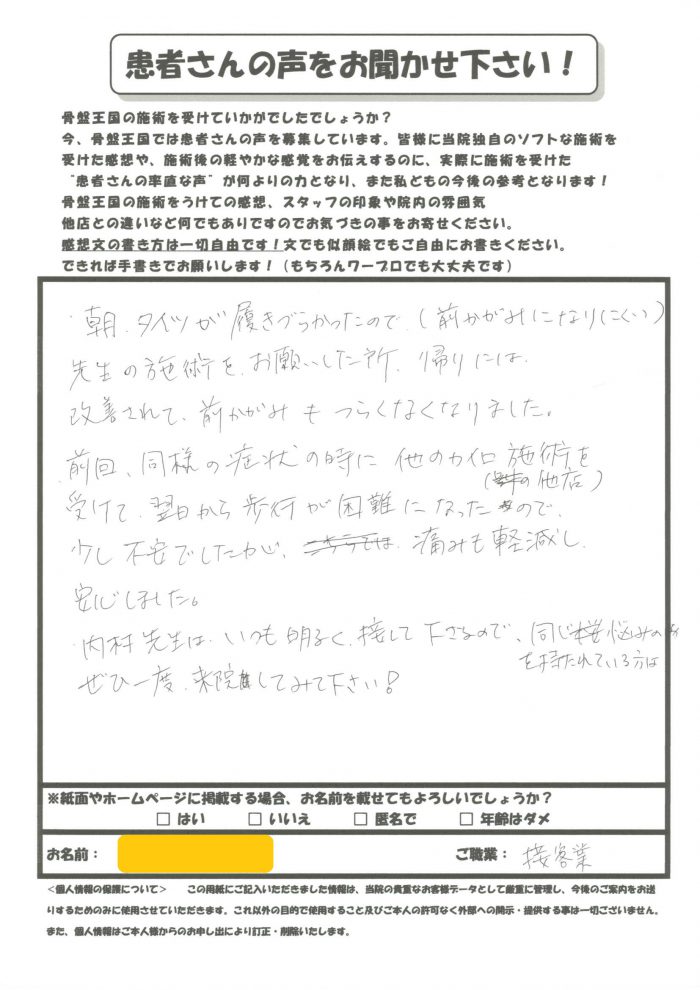 患者さんの声をお聞かせ下さい！
骨盤王国の施術を受けていかがでしたでしょうか？
今、骨盤王国では患者さんの声を募集しています。皆様に当院独自のソフトな施術を
受けた感想や、施術後の軽やかな感覚をお伝えするのに、実際に施術を受けた
“患者さんの率直な声”が何よりの力となり、また私どもの今後の参考となります！
骨盤王国の施術をうけての感想、スタッフの印象や院内の雰囲気
他店との違いなど何でもありですのでお気づきの事をお寄せください。
感想文の書き方は一切自由です！文でも似顔絵でもご自由にお書きください。
できれば手書きでお願いします！（もちろんワープロでも大丈夫です）
・朝、タイツが履きづらかったので、(前かがみになりにくい)
先生の施術を、お願いした所、帰りには、
改善されて、前かがみもつらくなくなりました。
前回、同様の症状の時に他のカイロ施術を
(他店)
受けて、翌日から歩行が困難になったので、
少し不安でしたが、痛みも軽減し、
安心しました。
・内村先生は、いつも明るく、接して下さるので、同じ悩みの
を持たれている方は
ぜひ一度、来院してみて下さい！
※紙面やホームページに掲載する場合、お名前を載せてもよろしいでしょうか？
□ はい □ いいえ □ 匿名で □ 年齢はダメ
お名前： ご職業： 接客業
＜個人情報の保護について＞ この用紙にご記入いただきました情報は、当院の貴重なお客様データとして厳重に管理し、今後のご案内をお送
りするためのみに使用させていただきます。これ以外の目的で使用すること及びご本人の許可なく外部への開示・提供する事は一切ございません。
また、個人情報はご本人様からのお申し出により訂正・削除いたします。